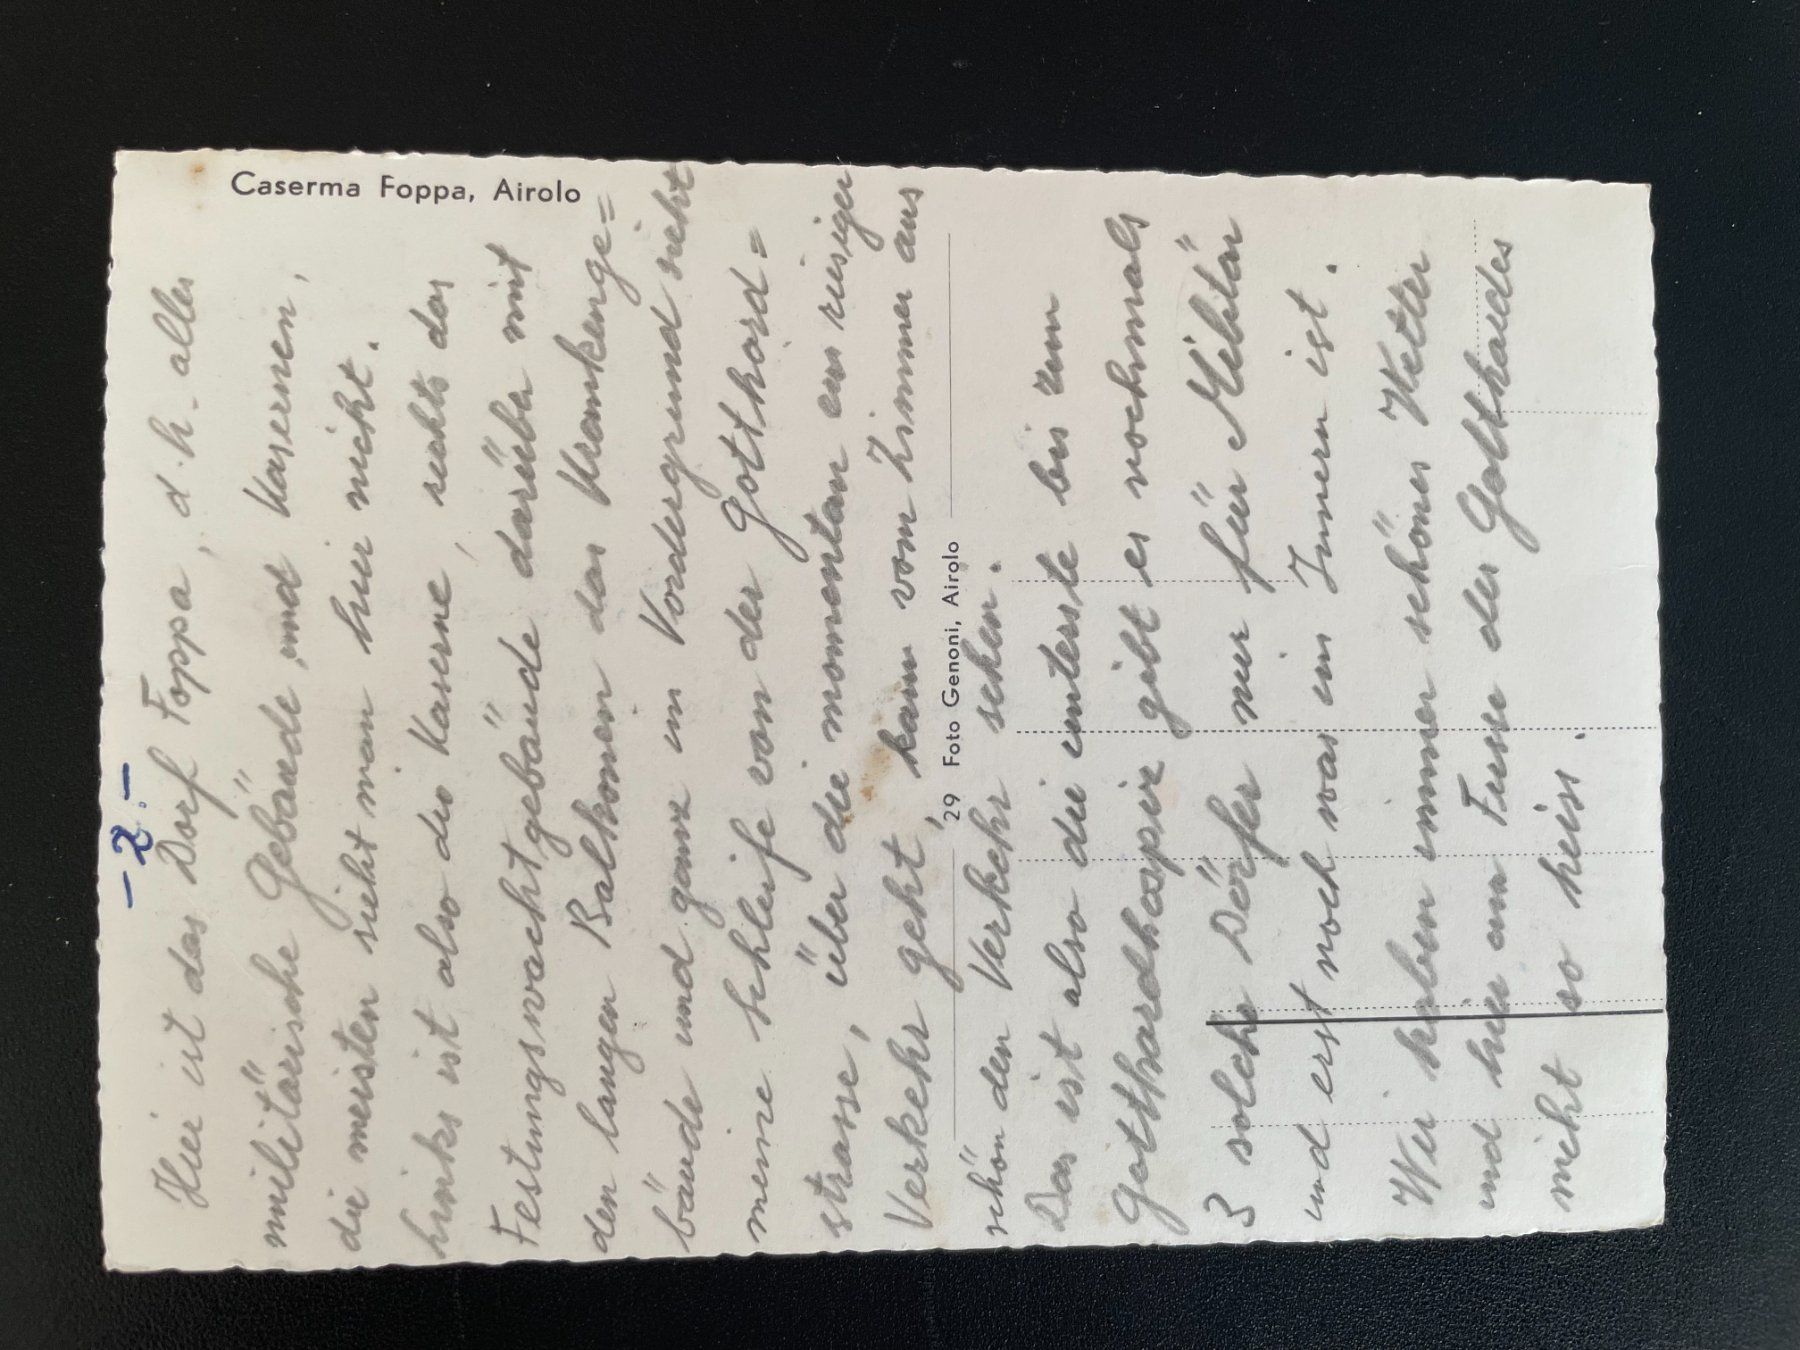 Caserma Foppa, Airolo
- 2. -
Hier ist das Dorf Foppa, d.h. alles
militärische Gebäude und Kasernen,
die meisten sieht man hier nicht.
Links ist also die Kaserne, rechts das
Festungswachtgebäude darüber mit
den langen Balkonen das Krankenge=
bäude und ganz im Vordergrund sieht
meine Schleife von der Gotthard=
strasse, über die momentan ein riesiger
Verkehr geht, kann vom Zimmer aus
schön den Verkehr sehen.
Das ist also die unterste bis zum
Gotthardhospiz gibt es nochmals
3 solche Dörfer nur für Militär
und erst noch was im Innern ist.
Wir haben immer schönes Wetter
und hier am Fusse des Gotthardes
nicht so heiss.
29 Foto Genoni, Airolo